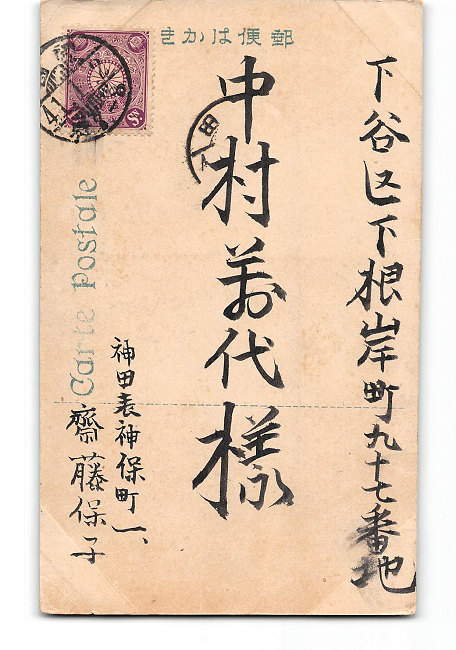 郵便はかき
下谷区下根岸町九十七番地
中村万代様
神田表神保町一、
齋藤保子
Carte Postale
田
41